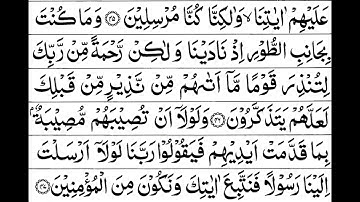 عَلَيْهِمْ اٰيٰتِنَا ۙ وَلٰكِنَّا كُنَّا مُرْسِلِيْنَ ﴿۴۵﴾ وَمَا كُنْتَ
بِجَانِبِ الطُّوْرِ اِذْ نَادَيْنَا وَلٰكِنْ رَّحْمَةً مِّنْ رَّبِّكَ
لِتُنْذِرَ قَوْمًا مَّاۤ اَتٰىهُمْ مِّنْ نَّذِيْرٍ مِّنْ قَبْلِكَ
لَعَلَّهُمْ يَتَذَكَّرُوْنَ ﴿۴۶﴾ وَلَوْلَاۤ اَنْ تُصِيْبَهُمْ مُّصِيْبَةٌۢ
بِمَا قَدَّمَتْ اَيْدِيْهِمْ فَيَقُوْلُوْا رَبَّنَا لَوْلَاۤ اَرْسَلْتَ
اِلَيْنَا رَسُوْلًا فَنَتَّبِعَ اٰيٰتِكَ وَنَكُوْنَ مِنَ الْمُؤْمِنِيْنَ ﴿۴۷﴾